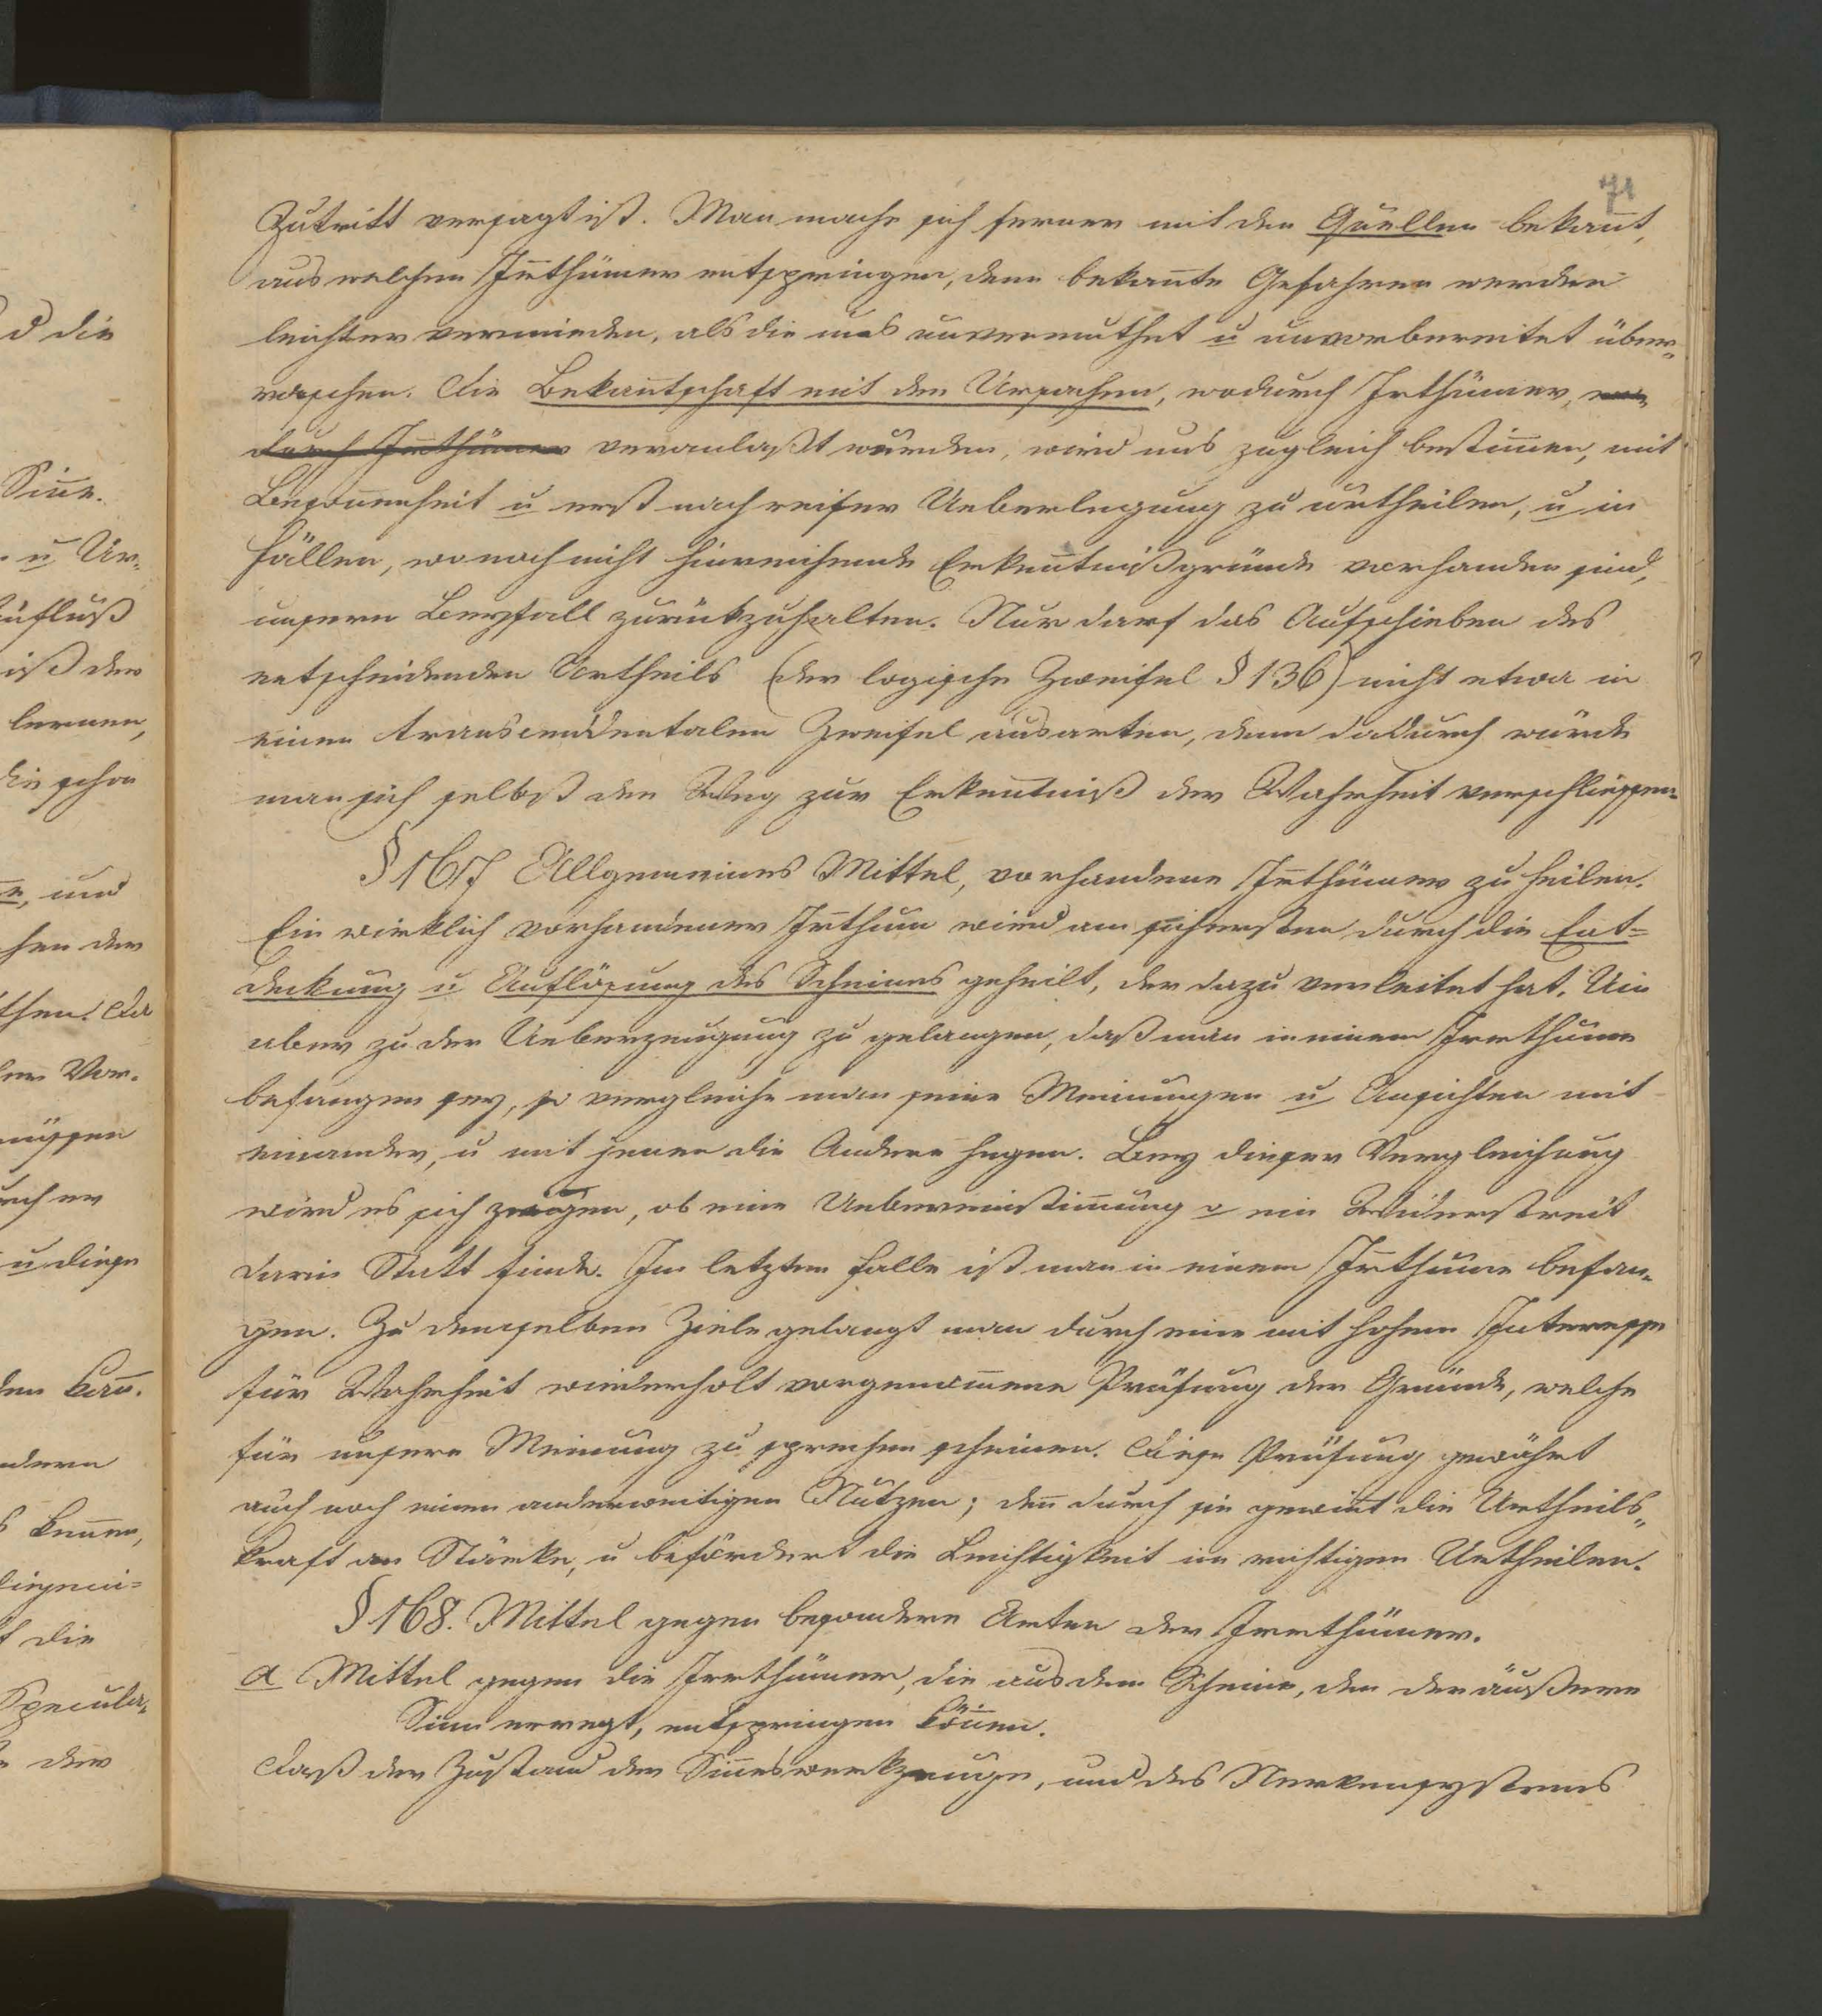 71
Zutritt versagt ist. Man mache sich ferner mit den Quellen bekan̅t,
aus welchen Ir̅thümer entspringen, denn bekan̅te Gefahren werden
leichter vermieden, als die uns unvermuthet u unvorbereitet über-
raschen. Die Bekan̅tschaft mit den Ursachen, wodurch Irthümer, wo-
durch Ir̅thümer veranlaßt wurden, wird uns zugleich bestim̅en, mit
Beson̅enheit u erst nach reifer Ueberlegung zu urtheilen, u in
Fällen, wo noch nicht hinreichende Erken̅tnißgründe vorhanden sind,
unsern Beyfall zurükzuhalten. Nur darf das Aufschieben des
entscheidenden Urtheils (der logische Zweifel § 136) nicht etwa in
einen transcendentalen Zweifel ausarten, denn dadurch würde
man sich selbst den Weg zur Erken̅tniß der Wahrheit verschliessen.
§ 167 Allgemeines Mittel, vorhandene Ir̅thümer zu heilen.
Ein wirklich vorhandener Ir̅thum wird am sichersten durch die Ent=
deckung u Auflösung des Scheines geheilt, der dazu verleitet hat. Um
aber zu der Ueberzeugung zu gelangen, daß man in einem Irrthume
befangen sey, so vergleiche man seine Meinungen u Ansichten mit
einander, u mit jenen die Andere hegen. Bey dieser Vergleichung
wird es sich zeigen, ob eine Uebereinstim̅ung o ein Widerstreit
darin Statt finde. Im letzten Falle ist man in einem Ir̅thume befan-
gen. Zu demselben Ziele gelangt man durch eine mit hohem Interesse
für Wahrheit wiederholt vorgenom̅ene Prüfung der Gründe, welche
für unsere Meinung zu sprechen scheinen. Diese Prüfung gewährt
auch noch einen anderweitigen Nutzen; den̅ durch sie gewin̅t die Urtheils-
kraft an Stärke, u befördert die Leichtigkeit im richtigen Urtheilen.
§ 168. Mittel gegen besondere Arten der Irrthümer.
a Mittel gegen die Irrthümer, die aus dem Scheine, den der äußere
Sinn erregt, entspringen kön̅en.
Daß der Zustand der Sin̅eswerkzeuge, und des Nervensystems
d die
Sin̅e.
u Ur-
influß
iß der
lernen,
die schon
und
hen der
then. Da
Vor-
müssen
u diese
den kan̅.
ndern
kennen,
t die
Specula-
der